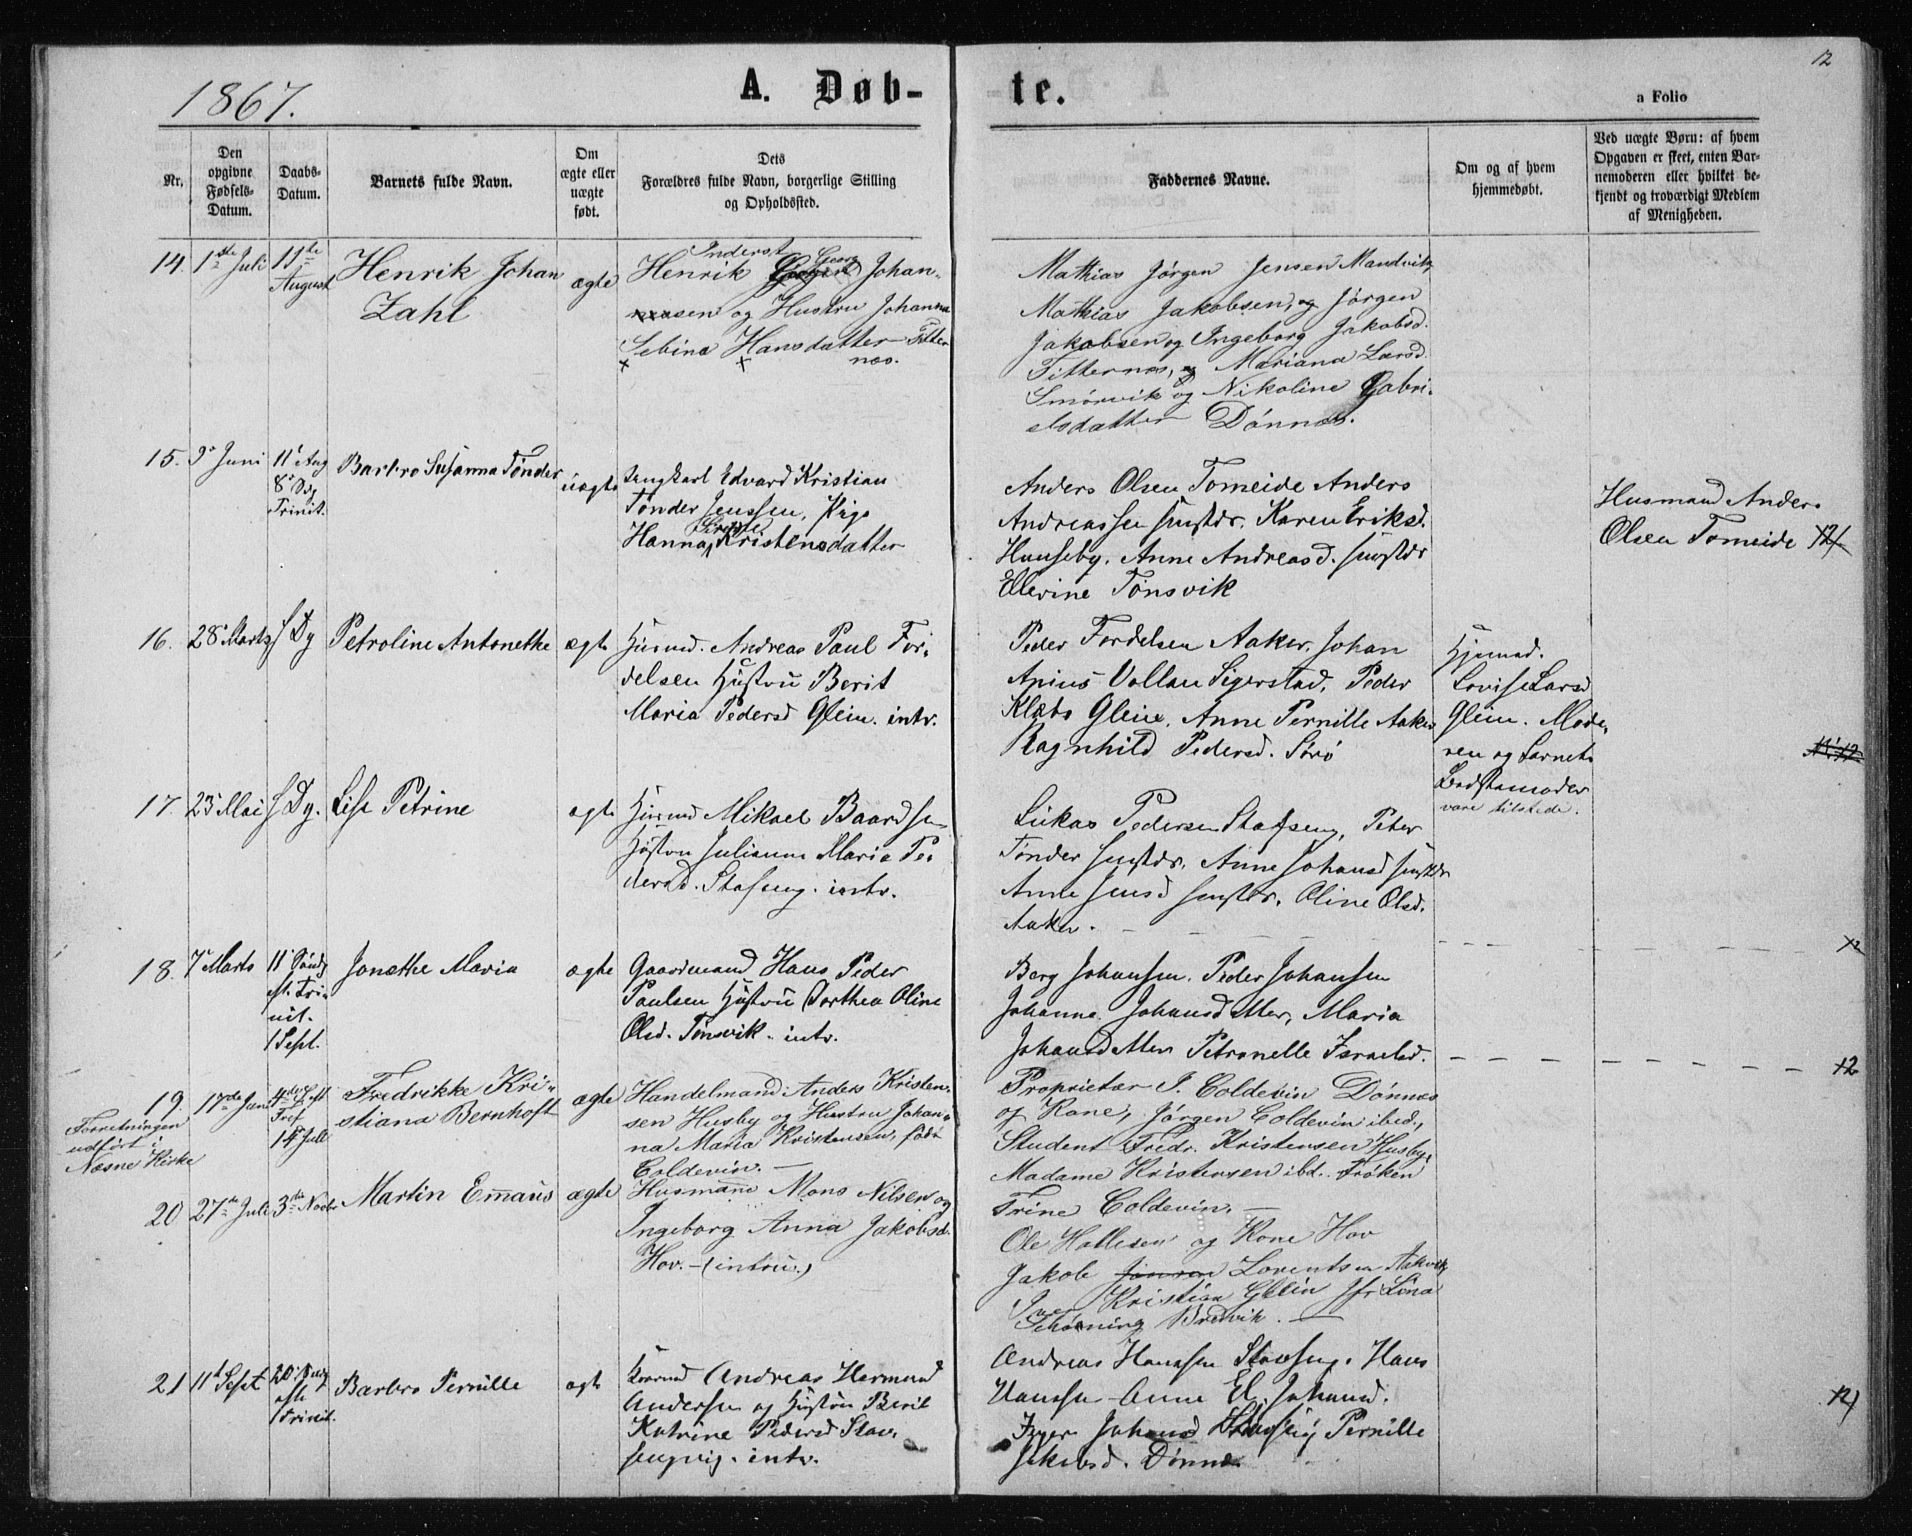 1867.
A. Døb-
te.
12
a Folio
Nr.
Den opgivne Fødsels-Datum.
Daabs-Datum.
Barnets fulde Navn.
Om ægte eller uægte født.
Dets Forældres fulde Navn, borgerlige Stilling og Opholdssted.
Faddernes Navne.
Om og af hvem hjemmedøbt.
Ved uægte Børn: af hvem Opgaven er skeet, enten Barnemoderen eller hvilket bekjendt og troværdigt Medlem af Menigheden.
14. 1ste Juli 11te August
Henrik Johan
Zahl
ægte
Inderst Georg
Henrik Johan-
sen og Hustru Johanna
Sebina Hansdatter Titter
næs.
Mathias Jörgen Jensen Mandvik,
Mathias Jakobsen, og Jörgen
Jakobsen og Ingeborg Jakobsd.
Titternæs, og Mariana Larsd.
Smörvik og Nikoline Gabri-
elsdatter Dönnæs.
15. 9' Juni 11' Aug
8' Sdg
Trinit.
Barbro Susanna Tönder
uægte
Ungkarl Edvard Kristian
Tönder Jenssen, Pige
Hanna Kristensdatter
Anders Olsen Tomeide Anders
Andreassen Karen Eriksd.
Huuseby. Anne Andreasd.
Ellevine Tönsvik
Husmand Anders
Olsen Tomeide
12
16. 28' Marts S Dg
Petroline Antonethe
ægte
Husmd. Andreas Paul Tor-
delsen Hustru Berit
Maria Pedersd Glein. intr.
Peder Tordelsen Aaker. Johan
Anius Vollan Sigerstad, Peder
Klæbo Gleine. Anne Pernille Aaker
Ragnhild Pedersd. Sörö
Hjemmed.
Lovise Larsd
Glein. Mode-
ren og Barnets
Bedstemoder
vare tilstede.
17. 23' Mai S Dg.
Lise Petrine
ægte
Husmd Mikael Baardsen
Hustru Julianne Maria Pe-
dersd. Stafseng. intr.
Lukas Pedersen Stafseng, Peter
Tönder Anne Johansd
Anne Jensd Oline Olsd.
Aaker.
12
18. 7' Marts 11' Söndg
eft. Tri-
nit.
1 Sept.
Jonethe Maria
ægte
Gaardmand Hans Peder
Paulsen Hustru Dorthea Oline
Olsd. Tönsvik. intr.
Berg Johansen. Peder Johansen
Johanna Johansdatter, Maria
Johansdatter Petronelle Israelsd.
12
19. 17de Juni 4de S. eft
Tref
14 Juli
Forretningen
udfört i
Næsne Kirke
Fredrikke Kri-
stiana Bernhoft
ægte
Handelmand Anders Kristen-
sen Husby og Hustru Johan-
na Maria Kristensen, födt
Coldevin.
Proprietær I. Coldevin Dönnæs
og Kone, Jörgen Coldevin ibed.,
Student Fredr. Kristensen Husby,
Madame Kristensen ibd. Fröken
Trine Coldevin.
20 27de Juli 3die Novbr
Martin Emaus
ægte
Husmann Mons Nilsen og
Ingeborg Anna Jakobsd.
Hov. (intru.)
Ole Hallesen og Kone Hov
Jakob Lorentsen Aakvik,
Kristian Glein Jfr Lina
Schöning Bredvik.
21 11te Sept 20' Sdg
eft
Trinit.
Barbro Pernille
ægte
Andreas Hermund
Andersen og Hustru Berit
Katrine Pedersd Stav-
sengvig. intr.
Andreas Hanssen Stavseng. Hans
Hanssen Anne El. Johansd.
Inger Johansd Pernille
Jakobsd. Dönnæs
12